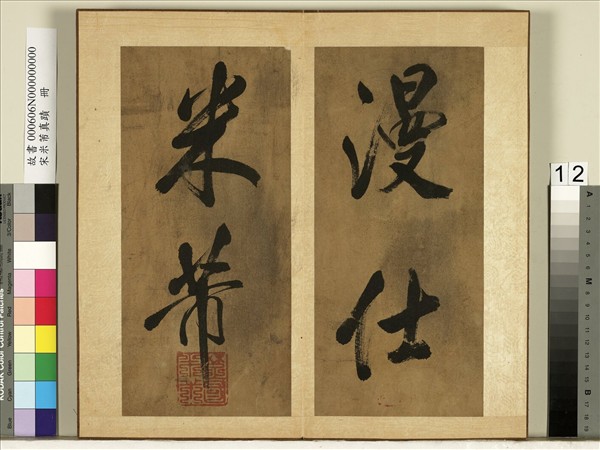 漫仕
米芾
故書 000606N000000000
宋米芾真蹟 冊
12
KODAK Color Control Patches
Blue
Cyan
Green
Yellow
Red
Magenta
White
3/Color
Black
A
1
2
3
4
5
6
M
8
9
10
11
12
13
14
15
B
17
18
19